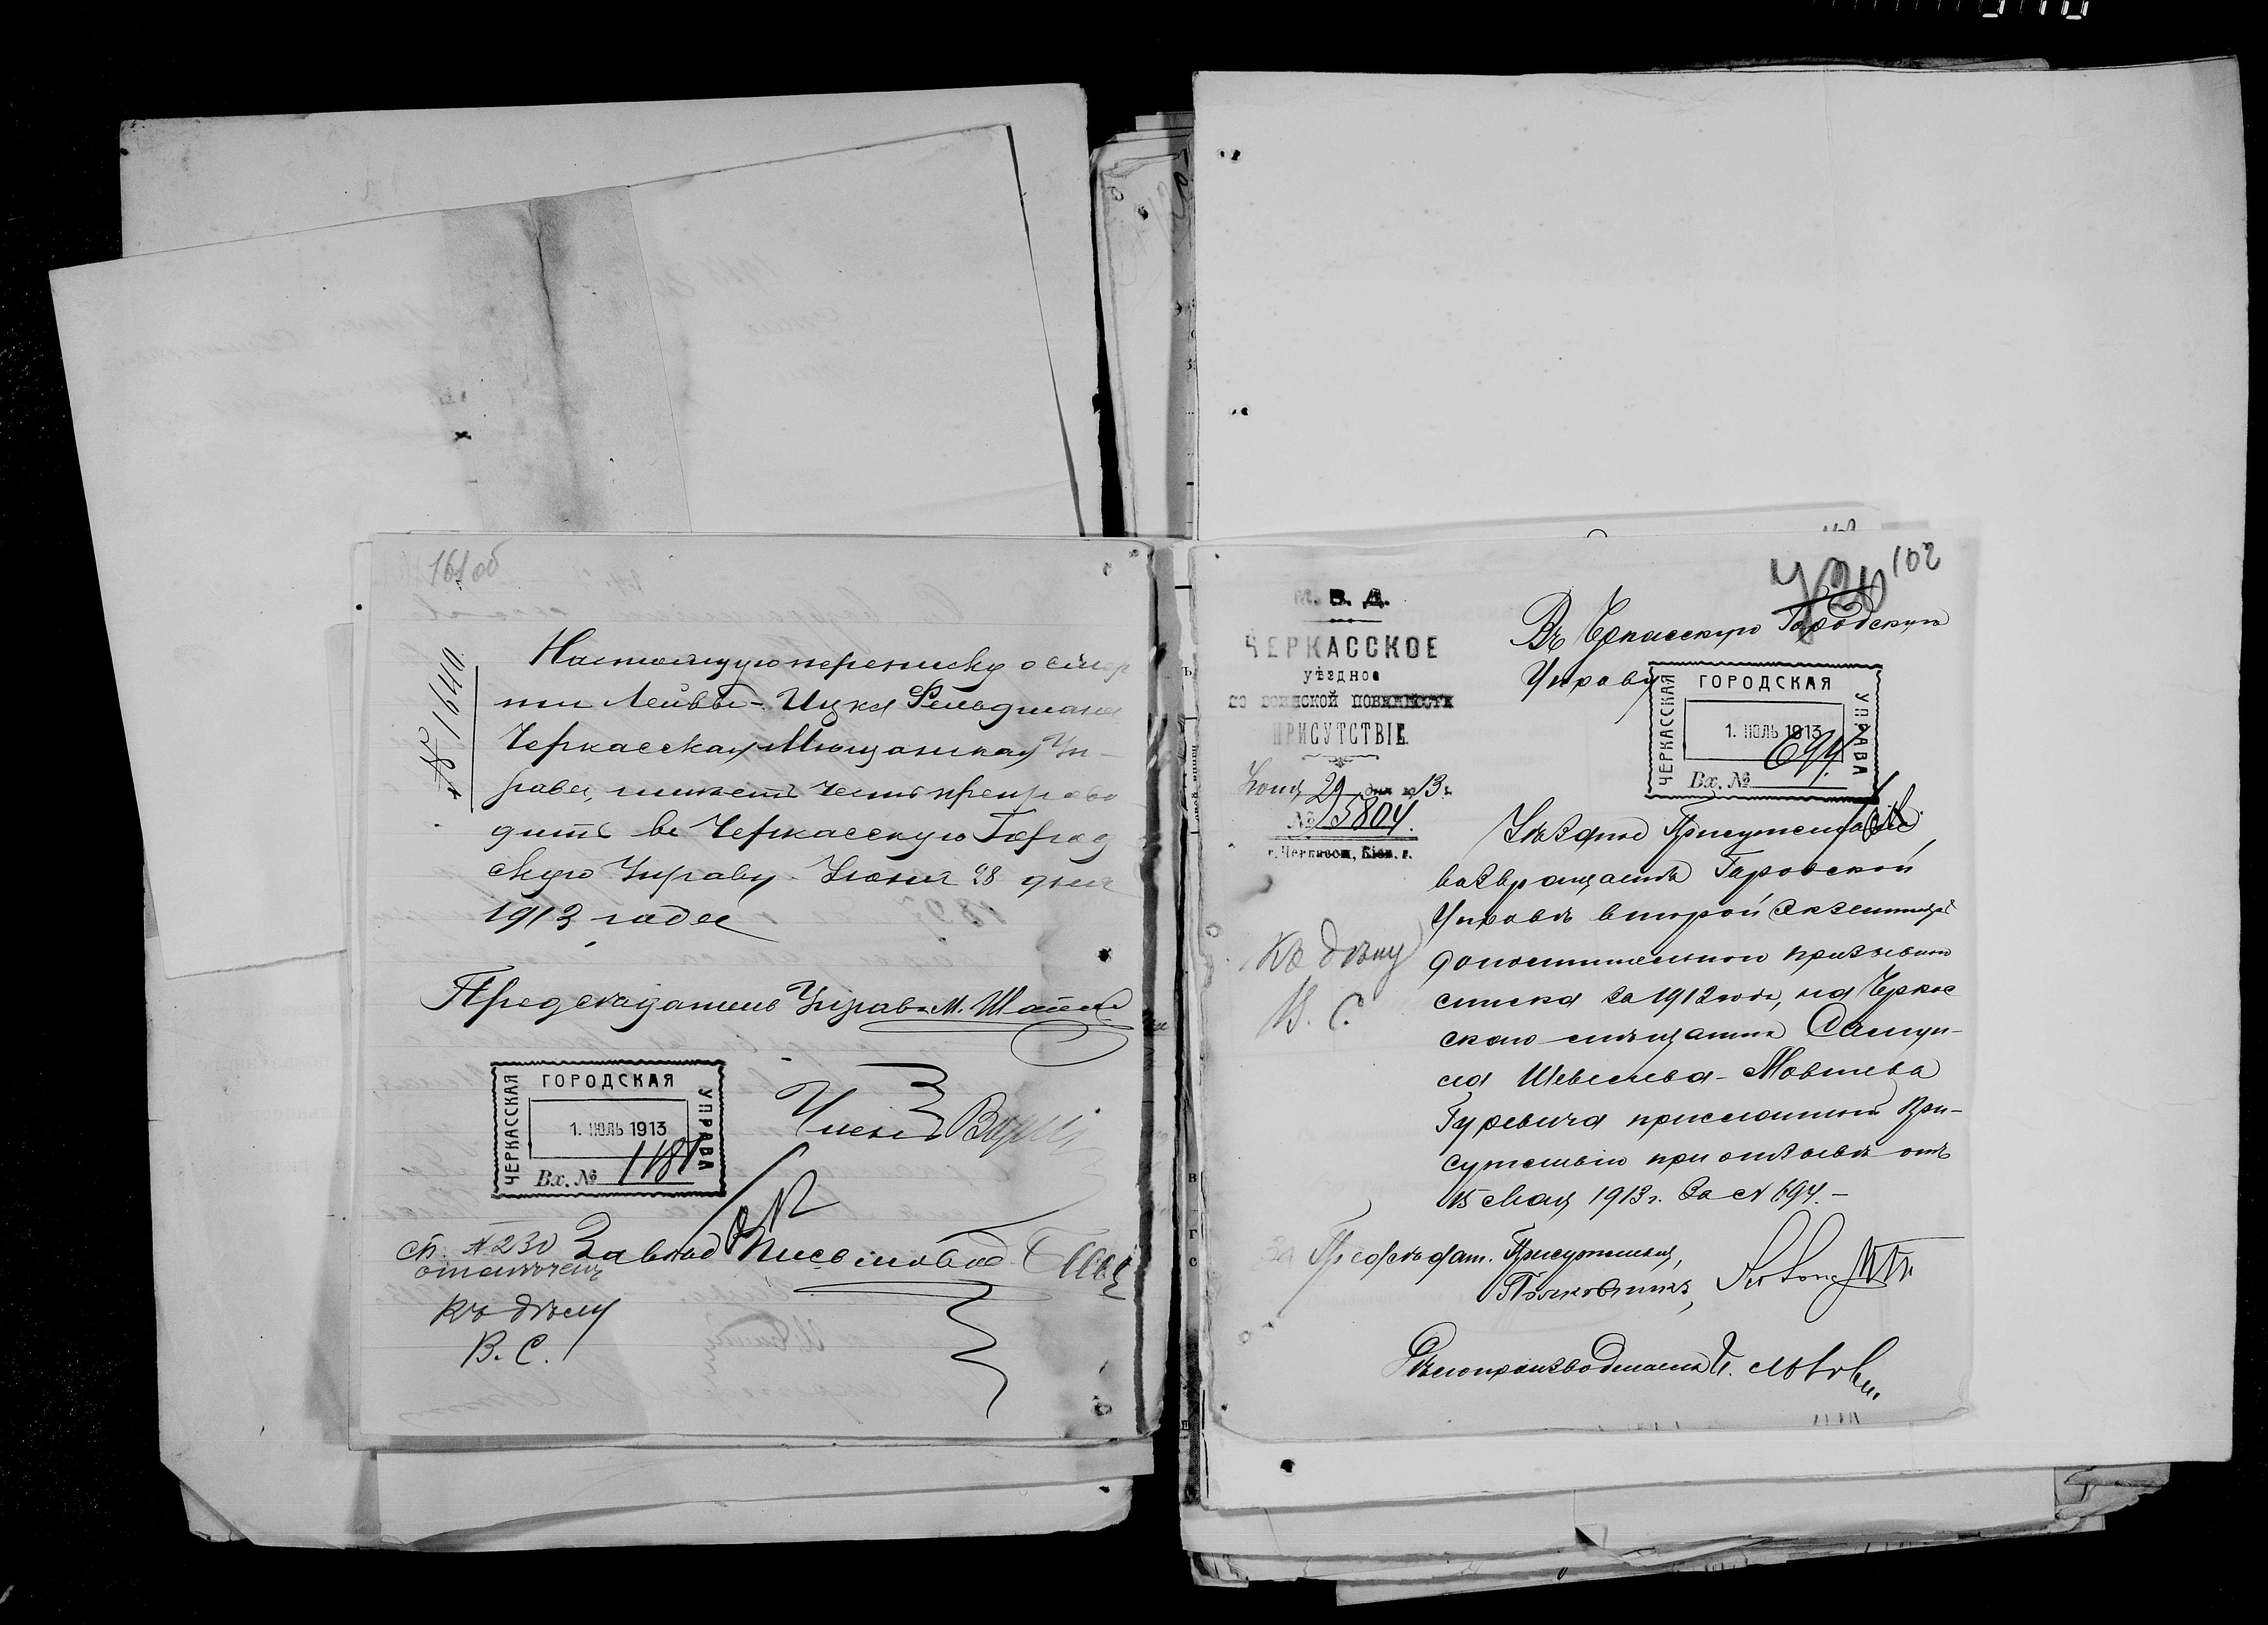 161 об
№ 1640
Настоящую переписку о смер
ти Лейбы-Ицка Фельдмана
Черкасская Мещанская Уп-
рава, имеетъ честь препрово
дить въ Черкасскую Город
скую Управу. Июня 28 дня
1913 года
Председатель Управы М.
ЧЕРКАССКАЯ
ГОРОДСКАЯ
УПРАВА
1. ИЮЛЬ 1913
Вх. №
Членъ
сп. № 230
отмѣчен
Завѣд Письмовод
Къ дѣлу
В. С.
102
М. В. Д.
ЧЕРКАССКОЕ
уѣздное
по воинской повинности
ПРИСУТСТВІЕ.
Іюня 29 дня 1913 г.
№ 15804.
г. Черкассы, Кіев. г.
Въ Черкасскую Городскую
Управу
ЧЕРКАССКАЯ
ГОРОДСКАЯ
УПРАВА
1. ИЮЛЬ 1913
Вх. № 694
Къ дѣлу
В. С.
Уѣздное Присутствіе
возвращаетъ Городской
Управѣ второй экземпляръ
дополнительного призывного
списка за 1912 годъ, на Черкас
скаго мѣщанина Самуи-
ла Шевелева-Мовшева
Гуревича присланный При-
сутствію при отзывѣ отъ
15 Мая 1913 г. За № 694.-
За Предсѣдат. Присутствія,
Полковникъ,
Дѣлопроизводитель